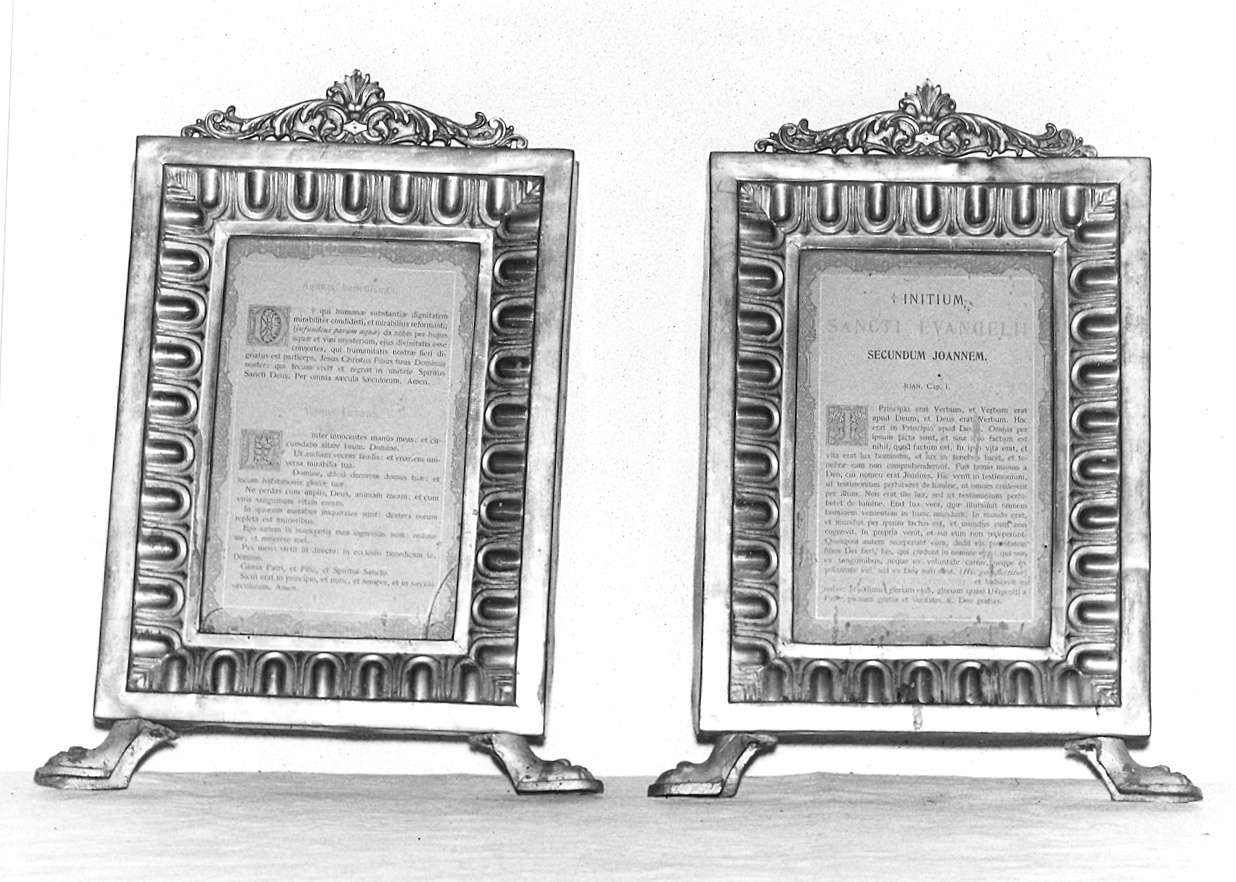 Aquam benedicens.
† qui humanæ substantiæ dignitatem
mirabiliter condidisti, et mirabilius reformasti;
(infundens parum aquæ) da nobis per hujus
aquæ et vini mysterium, ejus divinitatis esse
consortes, qui humanitatis nostræ fieri di-
gnatus est particeps, Jesus Christus Filius tuus Dominus
noster: qui tecum vivit et regnat in unitate Spiritus
Sancti Deus. Per omnia sæcula sæculorum. Amen.
inter innocentes manus meas: et cir-
cumdabo altare tuum, Domine.
Ut audiam vocem laudis: et enarrem uni-
versa mirabilia tua.
Domine, dilexi decorem domus tuæ: et
locum habitationis gloriæ tuæ.
Ne perdas cum impiis, Deus, animam meam: et cum
viris sanguinum vitam meam.
In quorum manibus iniquitates sunt: dextera eorum
repleta est muneribus.
Ego autem in innocentia mea ingressus sum: redime
me, et miserere mei.
Pes meus stetit in directo: in ecclesiis benedicam te,
Domine.
Gloria Patri, et Filio, et Spiritui Sancto.
Sicut erat in principio, et nunc, et semper, et in sæcula
sæculorum. Amen.
† INITIUM
SANCTI EVANGELII
SECUNDUM JOANNEM.
JOAN. Cap. I.
IN Principio erat Verbum, et Verbum erat
apud Deum, et Deus erat Verbum. Hoc
erat in Principio apud Deum. Omnia per
ipsum facta sunt, et sine ipso factum est
nihil, quod factum est. In ipso vita erat, et
vita erat lux hominum, et lux in tenebris lucet, et te-
nebræ eam non comprehenderunt. Fuit homo missus a
Deo, cui nomen erat Joannes. Hic venit in testimonium,
ut testimonium perhiberet de lumine, ut omnes crederent
per illum. Non erat ille lux, sed ut testimonium perhi-
beret de lumine. Erat lux vera, quæ illuminat omnem
hominem venientem in hunc mundum. In mundo erat,
et mundus per ipsum factus est, et mundus eum non
cognovit. In propria venit, et sui eum non receperunt.
Quotquot autem receperunt eum, dedit eis potestatem
filios Dei fieri, his, qui credunt in nomine ejus, qui non
ex sanguinibus, neque ex voluntate carnis, neque ex
voluntate viri, sed ex Deo nati sunt. (Hic genuflectitur)
et habitavit in
nobis: et vidimus gloriam ejus, gloriam quasi Unigeniti a
Patre, plenum gratiæ et veritatis. ℟. Deo gratias.